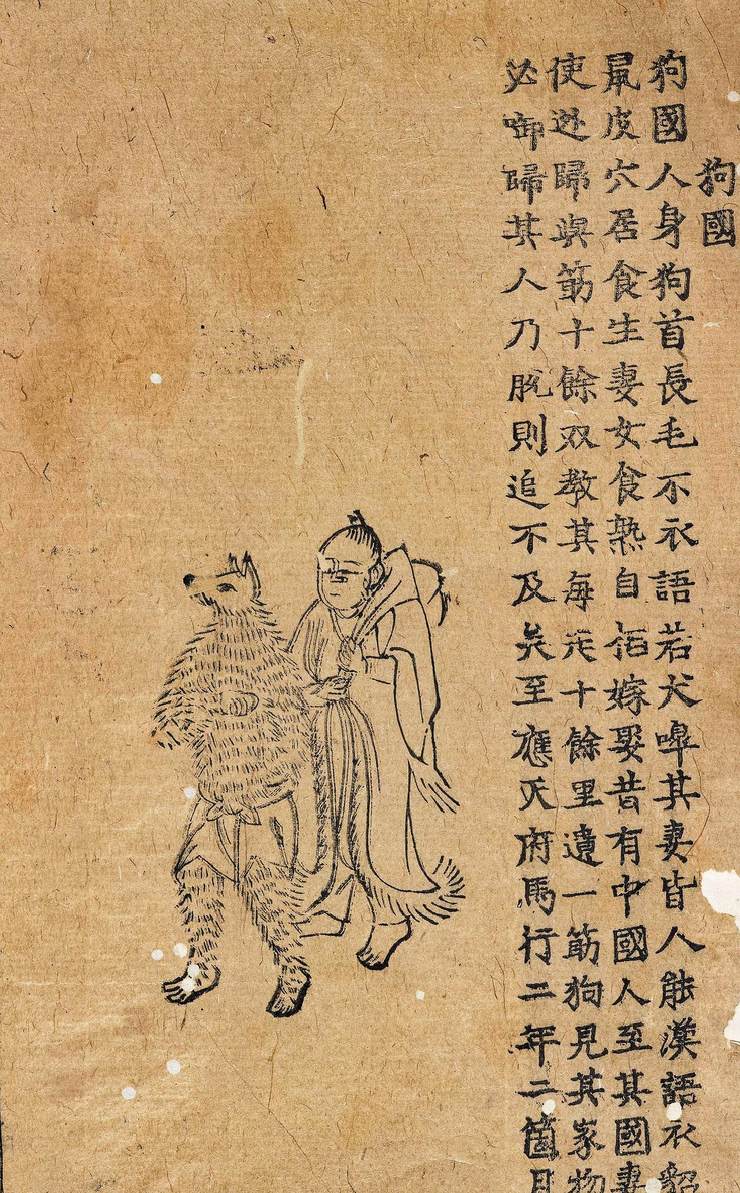 狗國
狗國人身狗首長毛不衣語若犬嘷其妻皆人能漢語衣貂
鼠皮穴居食生妻女食熟自相嫁娶昔有中國人至其國妻
使逃歸與筯十餘双教其每走十餘里遺一筯狗見其家物
必啣歸其人乃脱則追不及矣至應天府馬行二年二箇月